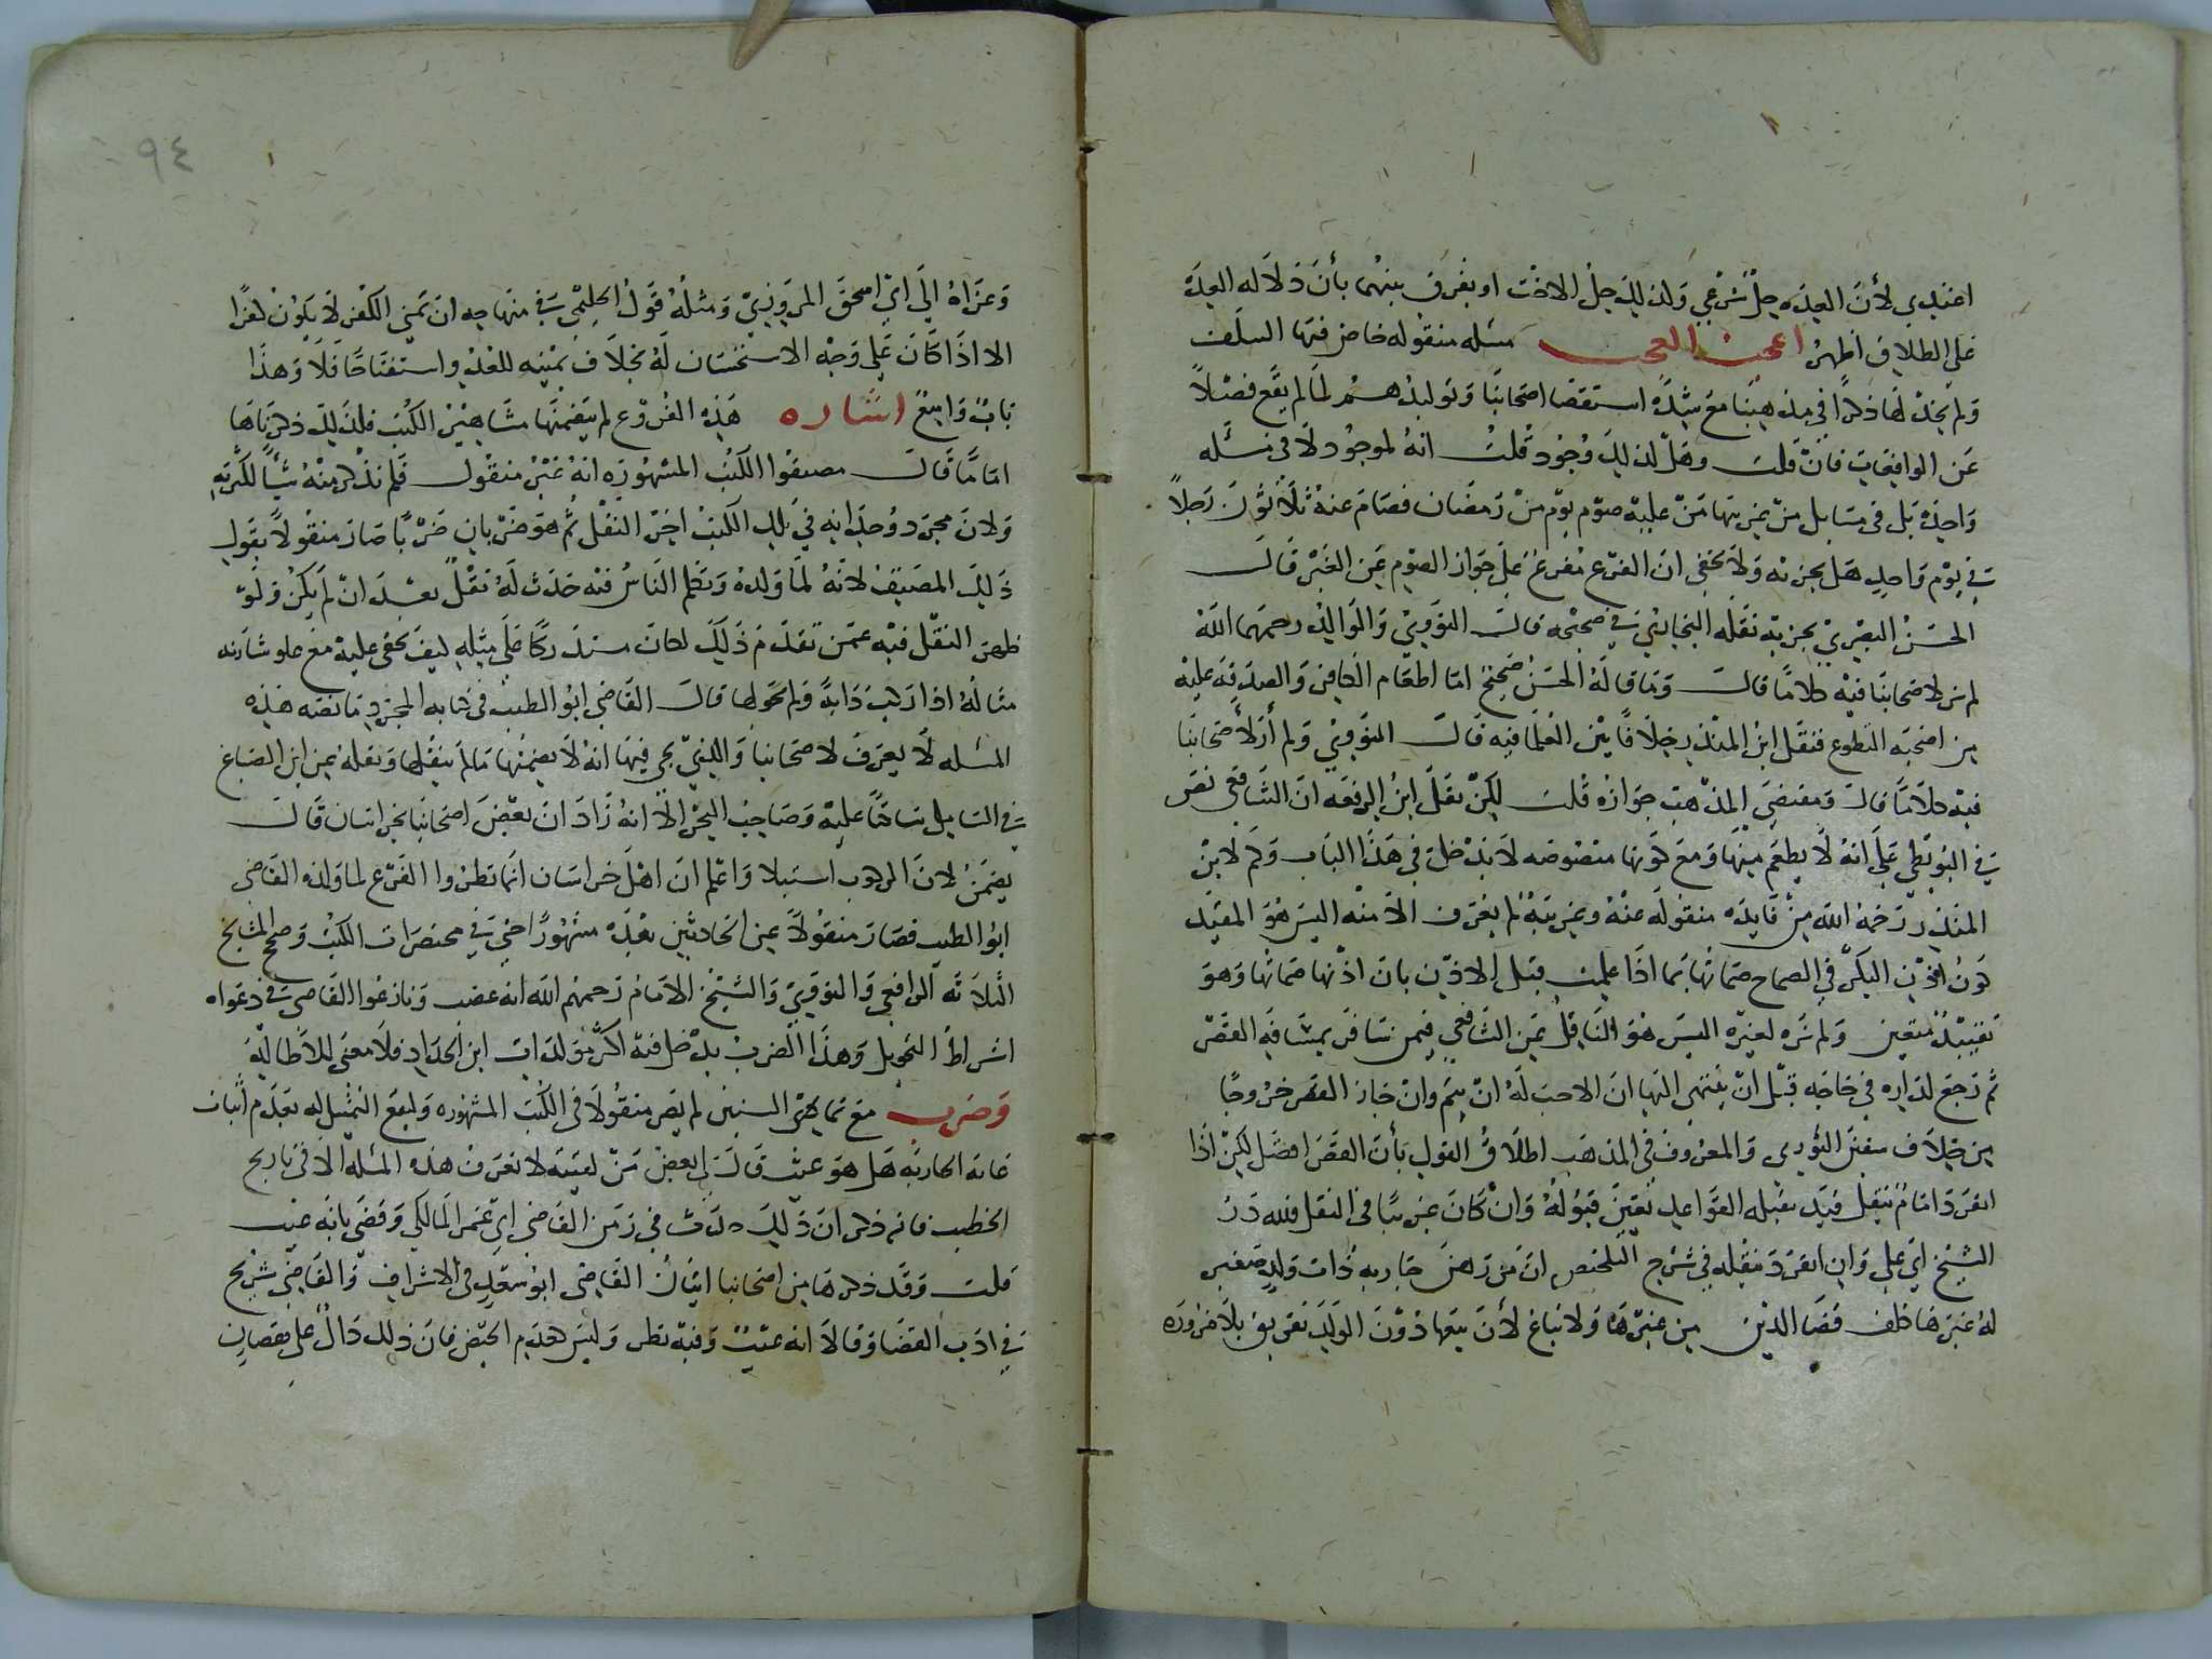 اعتدي لأن العده حل شرعي ولذلك حل الاخت او يفرق بينهما بأن دلاله العدة
على الطلاق اظهر اعجب العجب مسله منقوله خاض فيها السلف
ولم يجد لها ذكرا في مذهبنا مع شدة استقصا اصحابنا وتوليدهم لما لم يقع فضلا
عن الواقعات فان قلت وهل لذلك وجود قلت انه لموجود لا في مسئله
واحدة بل في مسايل من غريبها من عليه صوم يوم من رمضان فصام عنه ثلاثون رجلا
في يوم واحد هل يجزئه ولا يخفى ان الفرع مفرع على جواز الصوم عن الغير قال
الحسن البصري يجزيه نقله البخاري في صحيحه قال النووي والوالد رحمهما الله
لم نر لاصحابنا فيه كلاما قالت وما قاله الحسن صحيح اما اطعام الكافر والصدقه عليه
من اضحيه التطوع فنقل ابن المنذر خلافا بين العلما فيه قال النووي ولم أر لأصحابنا
فيه كلاما قال ومقتضى المذهب جوازه قلت لكن نقل ابن الرفعه ان الشافعي نص
في البويطي على انه لا يطعم منها ومع كونها منصوصه لا يدخل في هذا الباب وكم لابن
المنذر رحمه الله من فايده منقوله عنه وغريبة لم يعرف الا منه اليس هو المقيد
كون اذن البكر في الصماح صماتها بما اذا علمت قبل الاذن بان اذنها صماتها وهو
تقييد متعين ولم نره لغيره اليس هو الناقل عن الشافعي فيمن سافر بمسافه القصر
ثم رجع لداره في حاجه قبل ان ينتهى اليها ان الاحب له ان يتم وان جاز القصر خروجا
من خلاف سفين الثوري والمعروف في المذهب اطلاق القول بأن القصر افضل لكن اذا
انفرد امام بنقل قيد تقبله القواعد تعين قبوله وان كان غريبا في النقل فلله در
الشيخ ابي علي وان انفرد بنقله في شرح التلخيص ان من رهن جاريه ذات ولد صغير
له غيرها كلف قضا الدين من غيرها ولا تباع لأن بيعها دون الولد تفريق بلا ضروره
٩٤
وعزاه الى ابي اسحق المروزي ومثله قول الحليمي في منهاجه ان تمني الكفر لا يكون كفرا
الا اذا كان على وجه الاستحسان له بخلاف تمنيه للعدو واستفتاحا فلا وهذا
باب واسع اشاره هذه الفروع لم يتضمنها مشاهير الكتب فلذلك ذكرناها
اما ما قال مصنفوا الكتب المشهوره انه غير منقول فلم نذكر منه شيئا لكثرته
ولان مجرد وجدانه في تلك الكتب اخر النقل ثم هو ضربان ضربا صار منقولا بقول
ذلك المصنف لانه لما ولده وتكلم الناس فيه حدث له نقل بعد ان لم يكن ولو
ظهر النقل فيه عمن تقدم ذلك لكان مستدركا على مثله كيف يخفى عليه مع علو شأنه
مثاله اذا ركب دابة ولم يحولها قال القاضي ابو الطيب في كتابه المجرد ما نصه هذه
المسئله لا يعرف لاصحابنا والذي يجي فيها انه لا يضمنها ما لم ينقلها ونقله عن ابن الصباغ
في الشامل ساكتا عليه وصاحب البحر الا انه زاد ان بعض اصحابنا بخراسان قال
يضمن لان الركوب استيلا واعلم ان اهل خراسان انما نظروا الفرع لما ولده القاضي
ابو الطيب فصار منقولا عن الحادثين بعده مشهورا حتى في مختصرات الكتب وصحح المشايخ
الثلاثه الرافعي والنووي والشيخ الامام رحمهم الله انه غصب ونازعوا القاضي في دعواه
اشراط التحويل وهذا الضرب يدخل فيه اكثر مولدات ابن الحداد فلا معنى للاطاله
وضرب مع تمادي السنين لم يصر منقولا في الكتب المشهوره وليقع التمثيل له بعدم اثبات
عانه الجاريه هل هو عيب قال لي بعض من لقيته لا نعرف هذه المسئله الا في تاريخ
الخطيب فانه ذكر ان ذلك حدث في زمن القاضي ابي عمر المالكي وقضى بانه عيب
قلت وقد ذكرها من اصحابنا اثنان القاضي ابو سعد في الاشراف والقاضي شريح
في ادب القضا وقالا انه عيب وفيه نظر وليس كعدم الحيض فان ذلك دال على نقصان